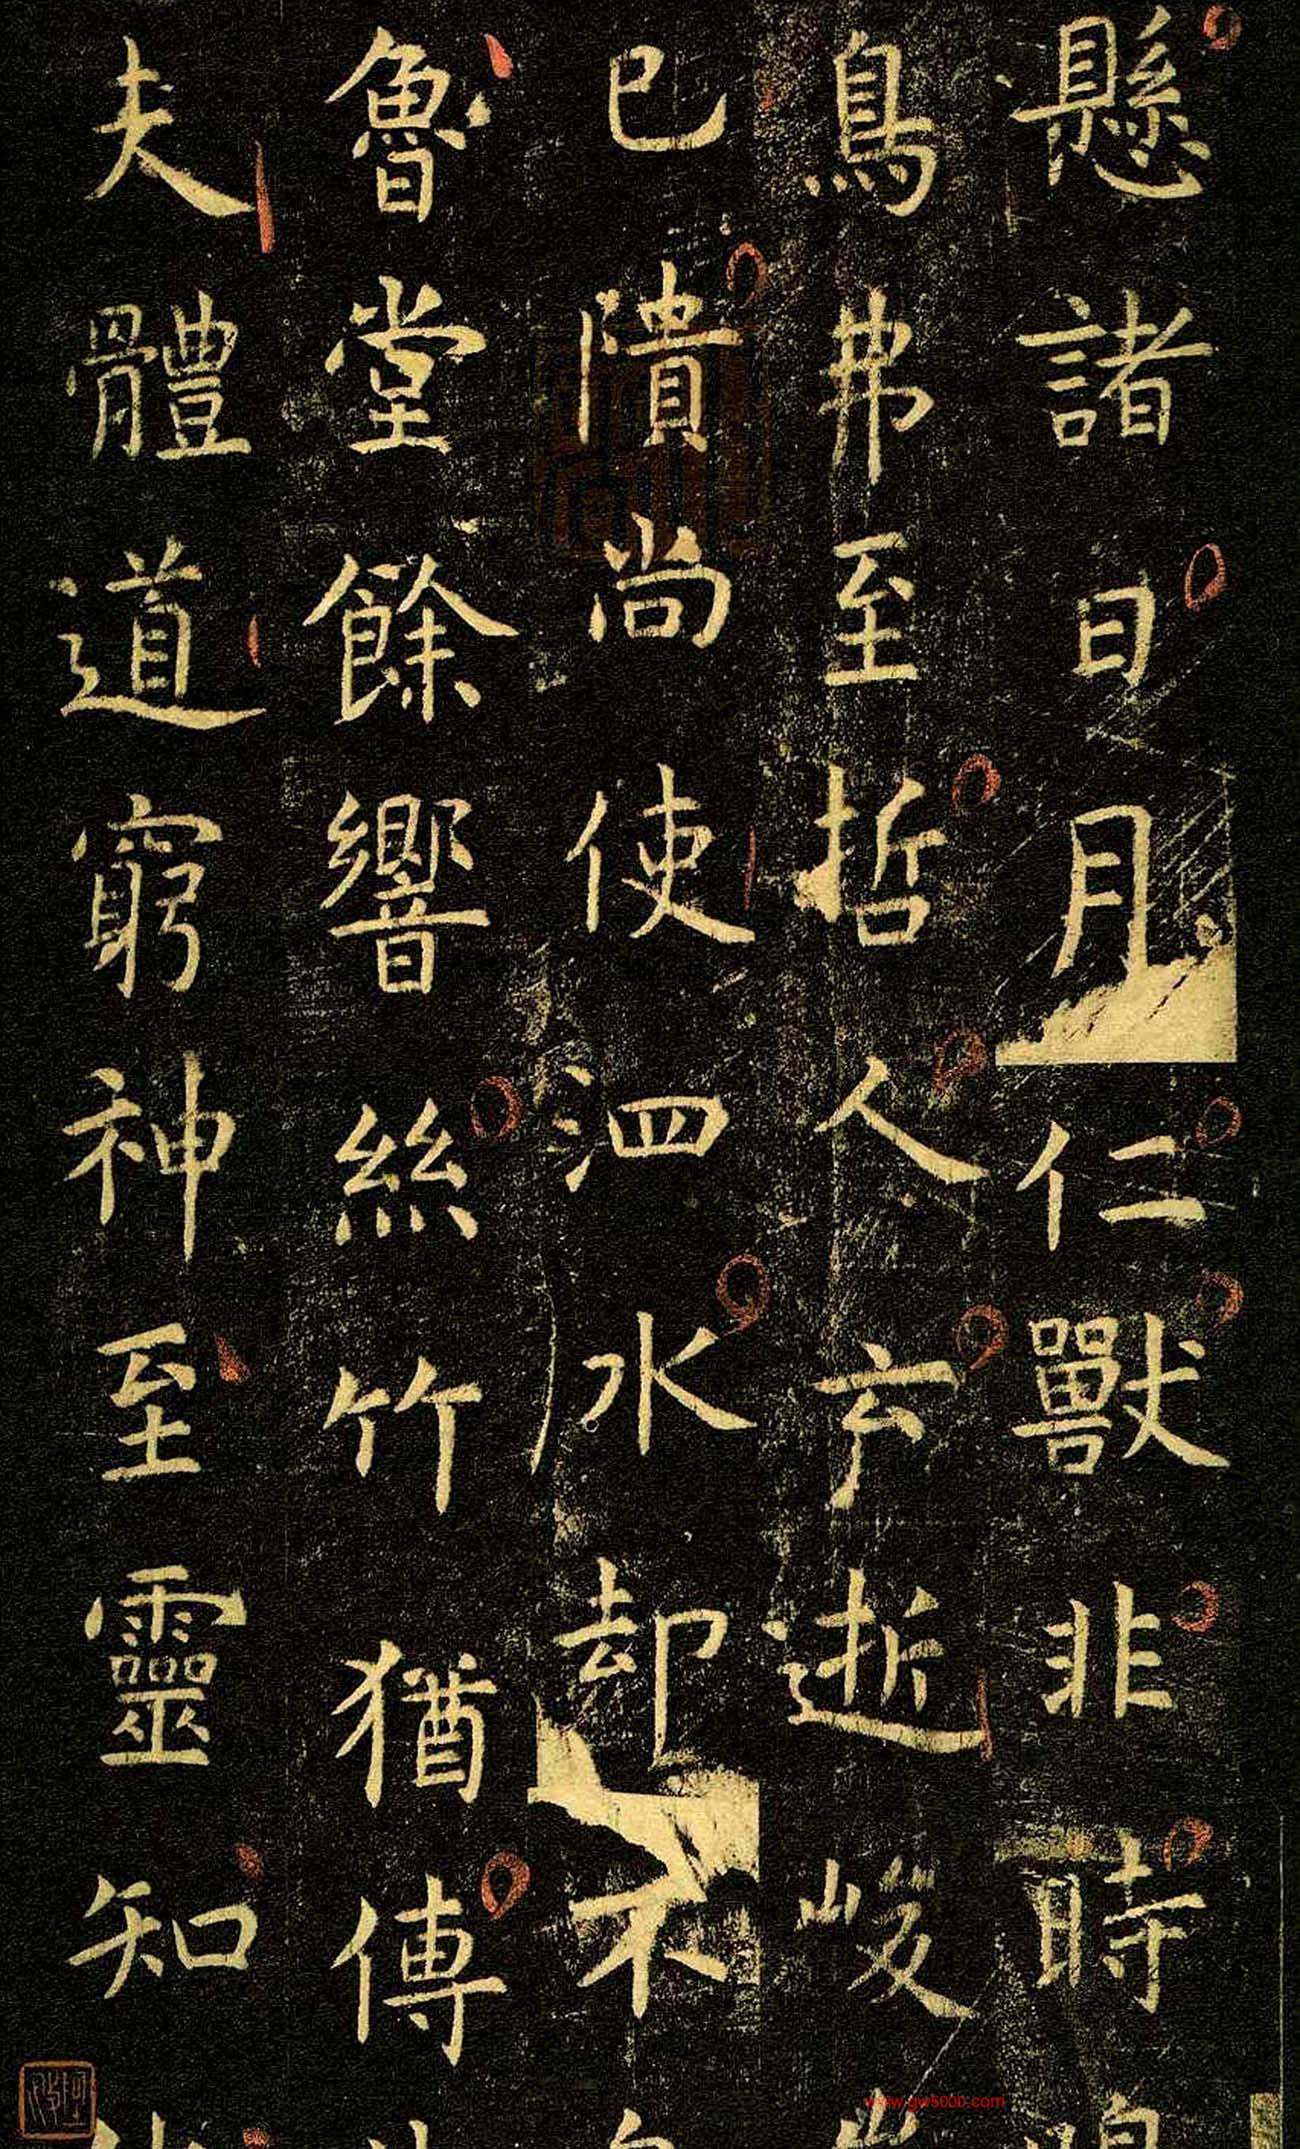 懸諸日月仁獸非時
鳥弗至哲人云逝峻
已隤尚使泗水却不
魯堂餘響絲竹猶傳
夫體道窮神至靈知
www.gw5000.com